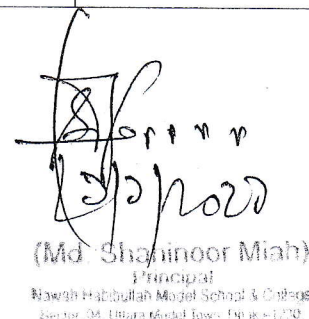 (Md. Shahinoor Miah)
Principal
Nawab Habibullah Model School & College
Sector 04, Uttara Model Town, Dhaka-1230